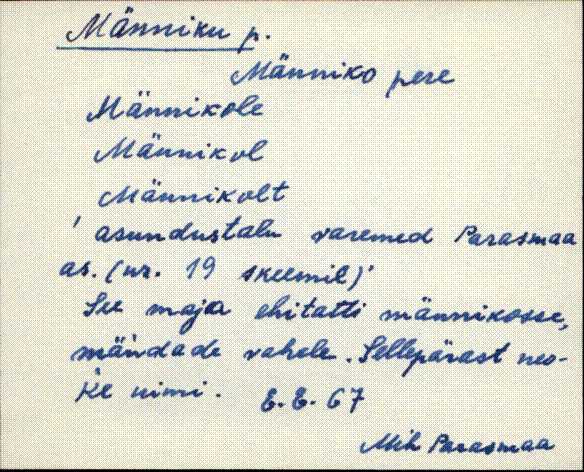 Männiku p.
Männiko pere
Männikole
Männikol
Männikolt
' asundustalu varemed Parasmaa
as. (nr. 19 skeemil)'
See maja ehitatti männikosse,
mändade vahele. Sellepärast neo-
ke nimi. E. E. 67
Mih Parasmaa